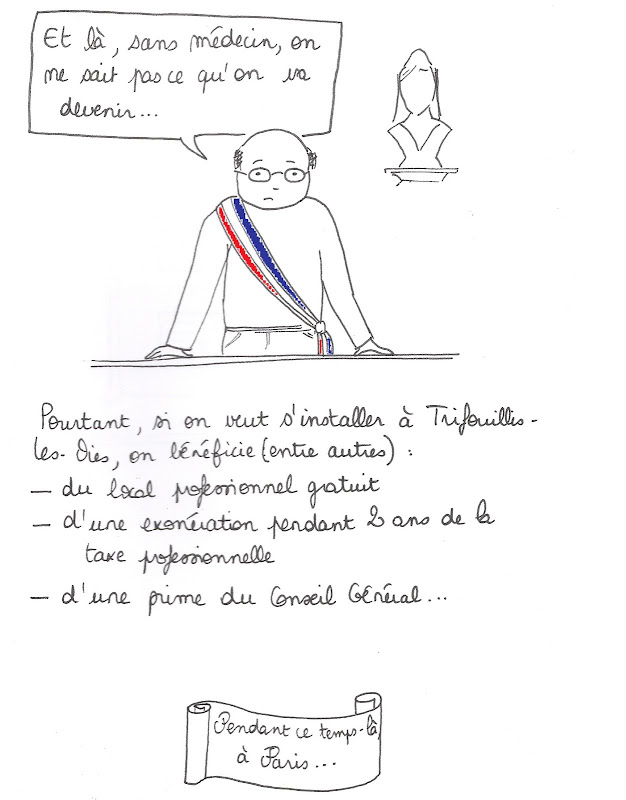 Et là, sans médecin, on
ne sait pas ce qu'on va
devenir...
Pourtant, si on veut s'installer à Trifouillis-
les-Oies, on bénéficie (entre autres) :
— du local professionnel gratuit
— d'une exonération pendant 2 ans de la
taxe professionnelle
— d'une prime du Conseil Général...
Pendant ce temps-là,
à Paris...